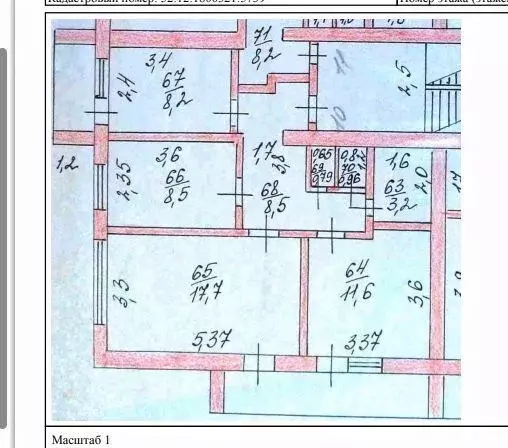 Кадастровый номер: 32:12:1600321:5739
71
8,2
3,4
67
8,2
2,4
2,5
11
10
1,2
3,6
66
8,5
2,35
1,7
3,8
68
8,5
0,65
69
0,79
0,8
70
0,96
1,6
63
3,2
2,0
65
17,7
3,3
5,37
64
11,6
3,6
3,37
Масштаб 1